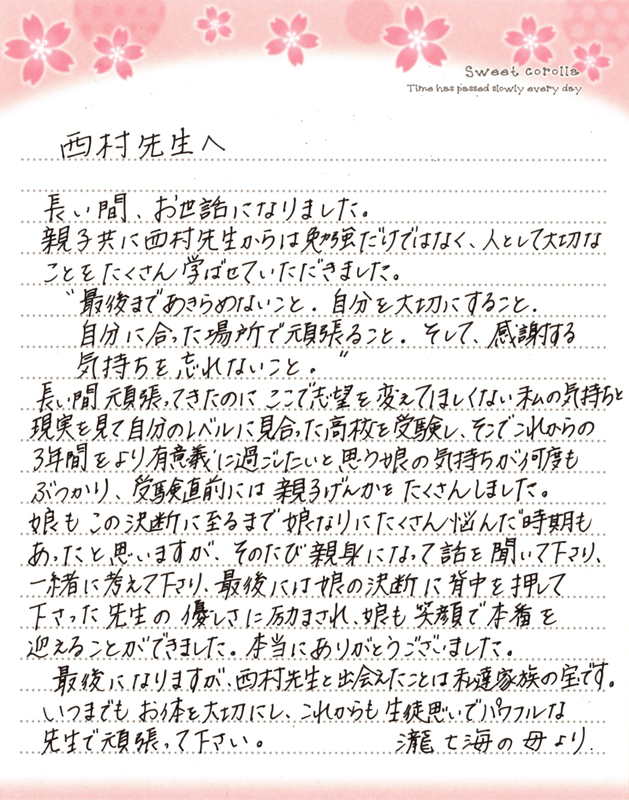 Sweet corolla
Time has passed slowly every day
西村先生へ
長い間、お世話になりました。
親子共に西村先生からは勉強だけではなく、人として大切な
ことをたくさん学ばせていただきました。
“最後まであきらめないこと. 自分を大切にすること.
自分に合った場所で頑張ること. そして、感謝する
気持ちを忘れないこと。”
長い間頑張ってきたのに ここで志望を変えてほしくない私の気持ちと
現実を見て自分のレベルに見合った高校を受験し、そこでこれからの
3年間をより有意義に過ごしたいと思う娘の気持ちが何度も
ぶつかり、受験直前には親子げんかをたくさんしました。
娘もこの決断に至るまで娘なりにたくさん悩んだ時期も
あったと思いますが、そのたび親身になって話を聞いて下さり、
一緒に考えて下さり、最後には娘の決断に背中を押して
下さった先生の優しさに励まされ、娘も笑顔で本番を
迎えることができました。本当にありがとうございました。
最後になりますが、西村先生と出会えたことは私達家族の宝です。
いつまでもお体を大切にし、これからも生徒思いでパワフルな
先生で頑張って下さい。 瀧七海の母より.